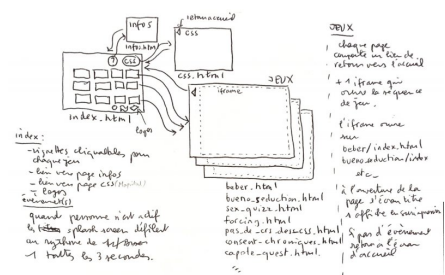 infos
infos.html
retour accueil
CSS
css.html
?
CSS
index.html
logos
JEUX
iframe
index :
- vignettes cliquables pour
chaque jeu
- lien vers page infos
- lien vers page CSS
- logos
évènement(s)
quand personne n'est actif
splash screen défilent
au rythme de
1 toutes les 3 secondes.
beber.html
bueno_seduction.html
sex_quizz.html
forcing.html
pas_de_cls_des_ccls.html
consent-chroniques.html
capote-quest.html
JEUX
chaque page
comporte un lien de
retour vers l'accueil
+ 1 iframe qui
ouvre la séquence
de jeu.
l'iframe ouvre
sur
beber/index.html
bueno.seduction/index
etc
à l'ouverture de la
page
s'affiche en
si pas d'évènement
retour à l'écran
d'accueil